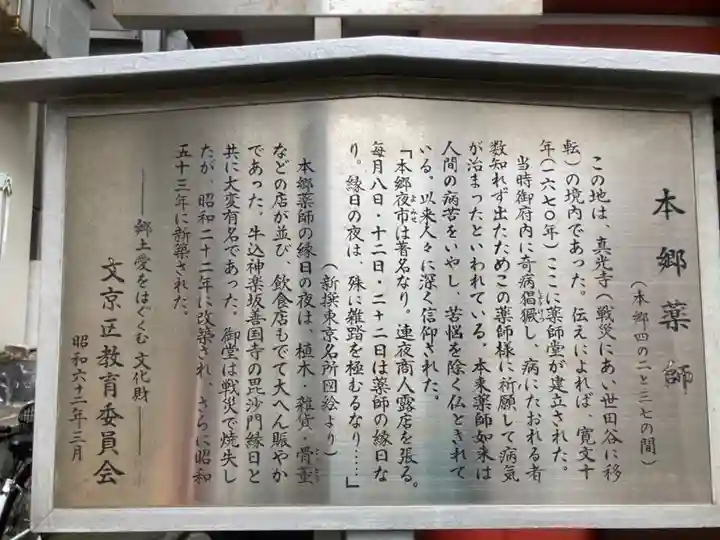 本郷薬師
(本郷四の二と三七の間)
この地は、真光寺(戦災にあい世田谷に移
転)の境内であった。伝えによれば、寛文十
年(一六七〇年)ここに薬師堂が建立された。
当時御府内に奇病猖獗し、病にたおれる者
数知れず出たためこの薬師様に祈願して病気
が治まったといわれている。本来薬師如来は
人間の病苦をいやし、苦悩を除く仏とされて
いる。以来人々に深く信仰された。
「本郷夜市は著名なり。連夜商人露店を張る。
毎月八日・十二日・二十二日は薬師の縁日な
り。縁日の夜は 殊に雑踏を極むるなり……」
(新撰東京名所図絵より)
本郷薬師の縁日の夜は、植木・雑貨・骨董
などの店が並び、飲食店もでて大へん賑やか
であった。牛込神楽坂善国寺の毘沙門縁日と
共に大変有名であった。御堂は戦災で焼失し
たが、昭和二十二年に改築され、さらに昭和
五十三年に新築された。
――郷土愛をはぐくむ 文化財――
文京区教育委員会
昭和六十二年三月